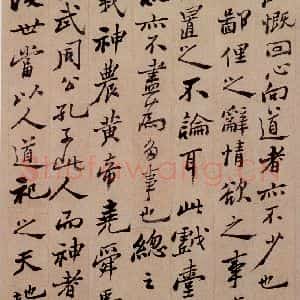 慨回心向道者亦不少也
鄙俚之辭情欲之事
置之不論耳此戲臺
亦不盡為多事也總之
羲神農黃帝堯舜
武周公孔子此人而神者
世當以人道祀之天地
Shufawang.cn